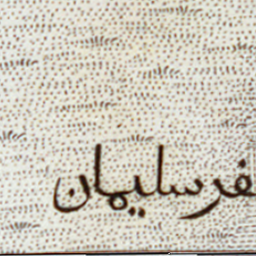 فر سليمان